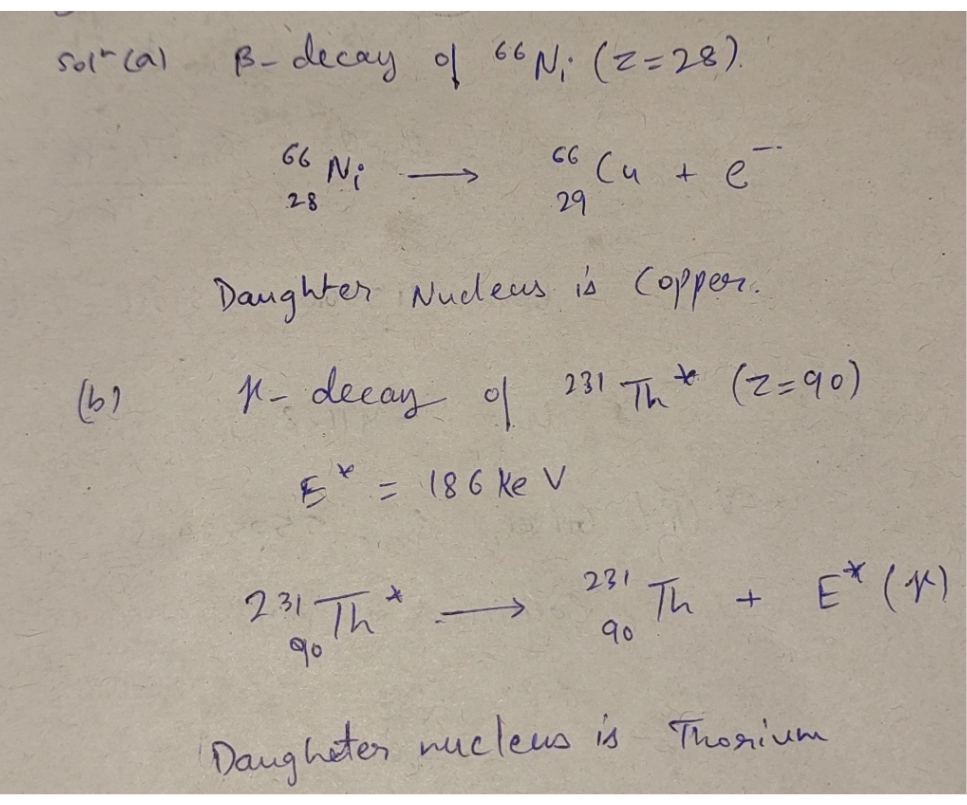 Solⁿ (a) β- decay of ⁶⁶Ni (z=28).
⁶⁶₂₈Ni ⟶ ⁶⁶₂₉Cu + e⁻
Daughter Nucleus is Copper.
(b) γ- decay of ²³¹Th* (z=90)
E* = 186 KeV
²³¹₉₀Th* ⟶ ²³¹₉₀Th + E* (γ)
Daugheter nucleus is Thorium